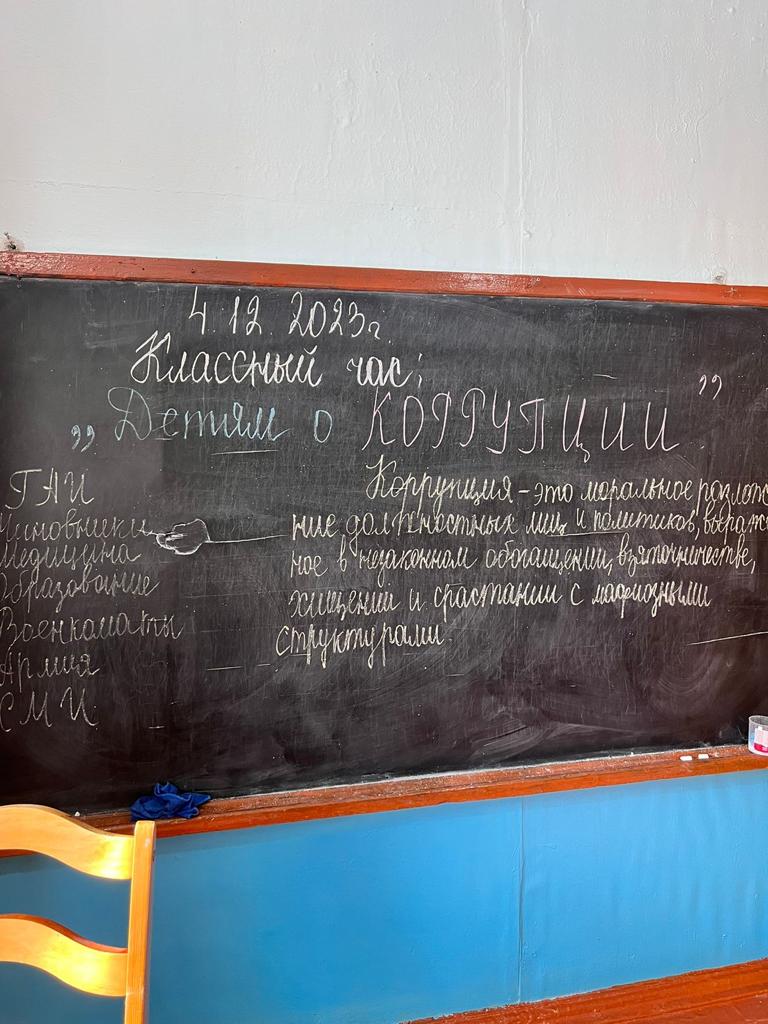 4.12.2023г.
Классный час:
„ Детям о КОРРУПЦИИ ”
ГАИ
Чиновники
Медицина
Образование
Военкоматы
Армия
СМИ
Коррупция - это моральное разлож
ние должностных лиц и политиков, выраж
ное в незаконном обогащении, взяточничестве,
хищении и срастании с мафиозными
структурами.